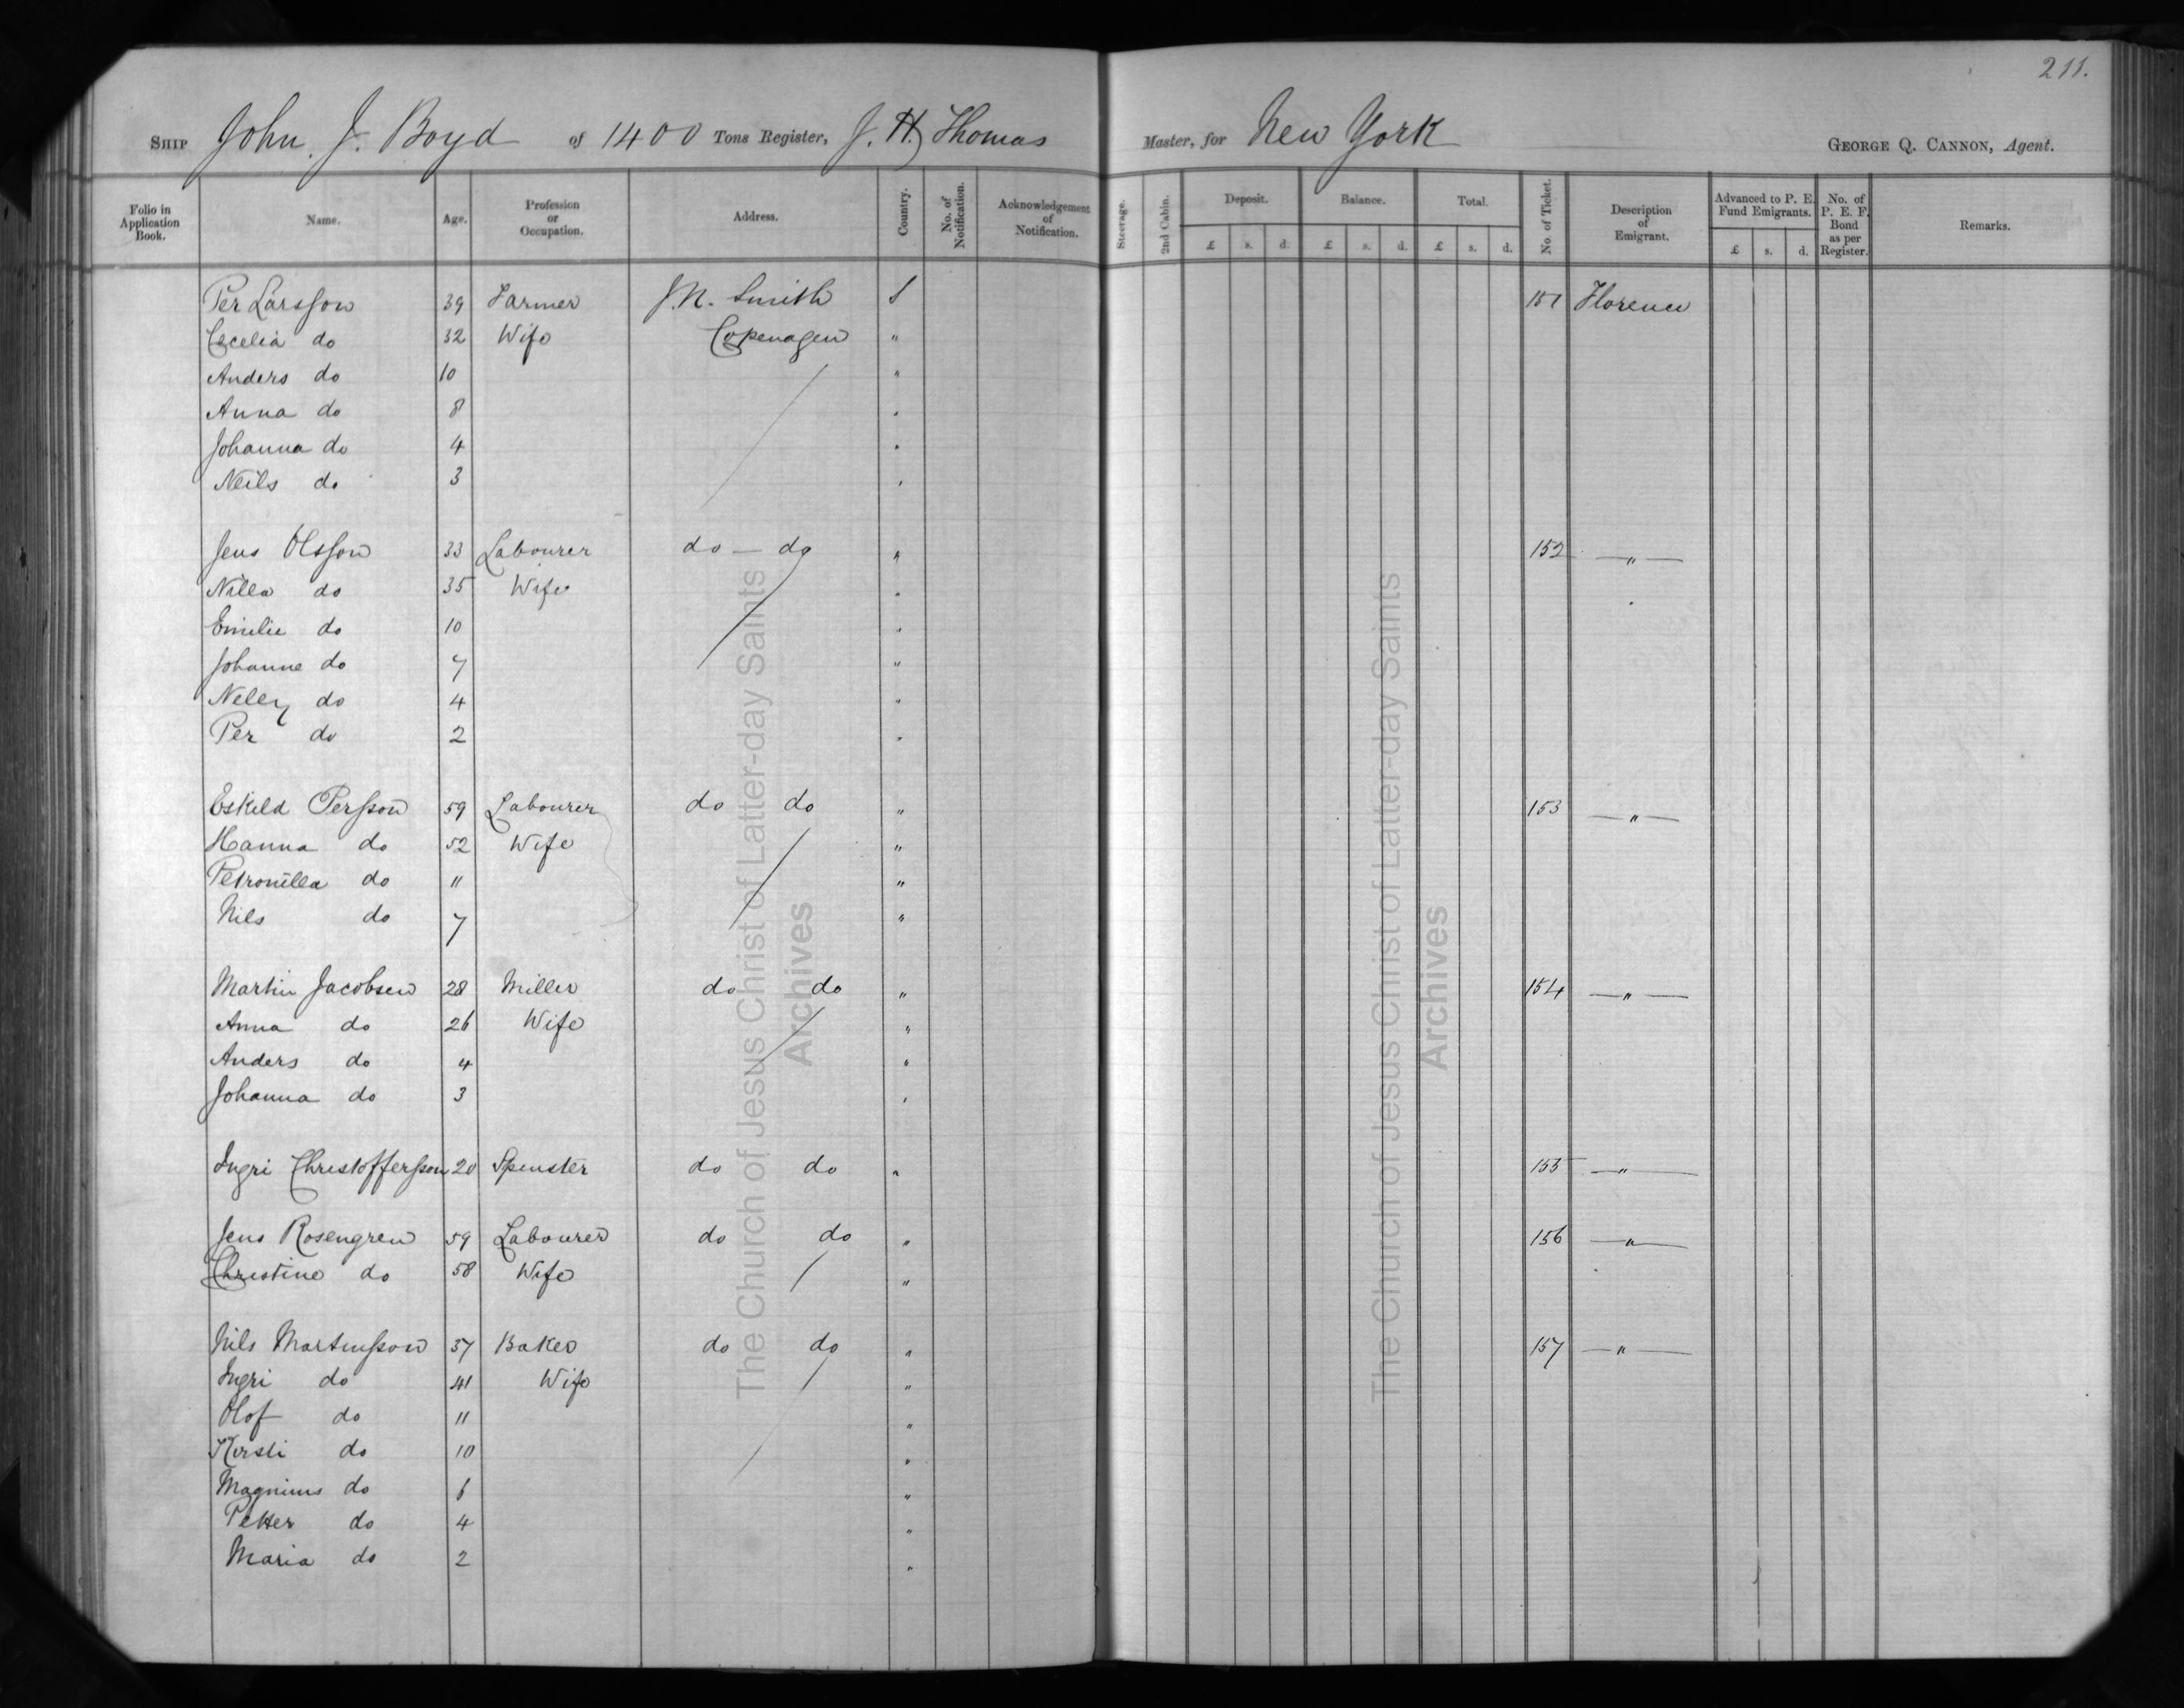 211.
SHIP John. J. Boyd of 1400 Tons Register, J. H. Thomas Master, for New York GEORGE Q. CANNON, Agent.
Folio in Application Book. Name. Age. Profession or Occupation. Address. Country. No. of Notification. Acknowledgement of Notification. Steerage. 2nd Cabin. Deposit. £ s. d. Balance. £ s. d. Total. £ s. d. No. of Ticket. Description of Emigrant. Advanced to P. E. Fund Emigrants. £ s. d. No. of P. E. F. Bond as per Register. Remarks.
Per Larsson 39 Farmer J. N. Smith S 151 Florence
Cecelia do 32 Wife Copenagen "
Anders do 10 "
Anna do 8 "
Johanna do 4 "
Neils do 3 "
Jens Olsson 33 Labourer do — do " 152 — " —
Nilla do 35 Wife "
Emilie do 10 "
Johanne do 7 "
Nelly do 4 "
Per do 2 "
Eskild Persson 59 Labourer do do " 153 — " —
Hanna do 52 Wife "
Petronilla do 11 "
Nils do 7 "
Martin Jacobsen 28 Miller do do " 154 — " —
Anna do 26 Wife "
Anders do 4 "
Johanna do 3 "
Ingri Christoffersson 20 Spinster do do " 155 — " —
Jens Rosengren 59 Labourer do do " 156 — " —
Christine do 58 Wife "
Nils Martinsson 37 Baker do do " 157 — " —
Ingri do 41 Wife "
Olof do 11 "
Kersti do 10 "
Magnius do 6 "
Petter do 4 "
Maria do 2 "
The Church of Jesus Christ of Latter-day Saints
Archives
The Church of Jesus Christ of Latter-day Saints
Archives